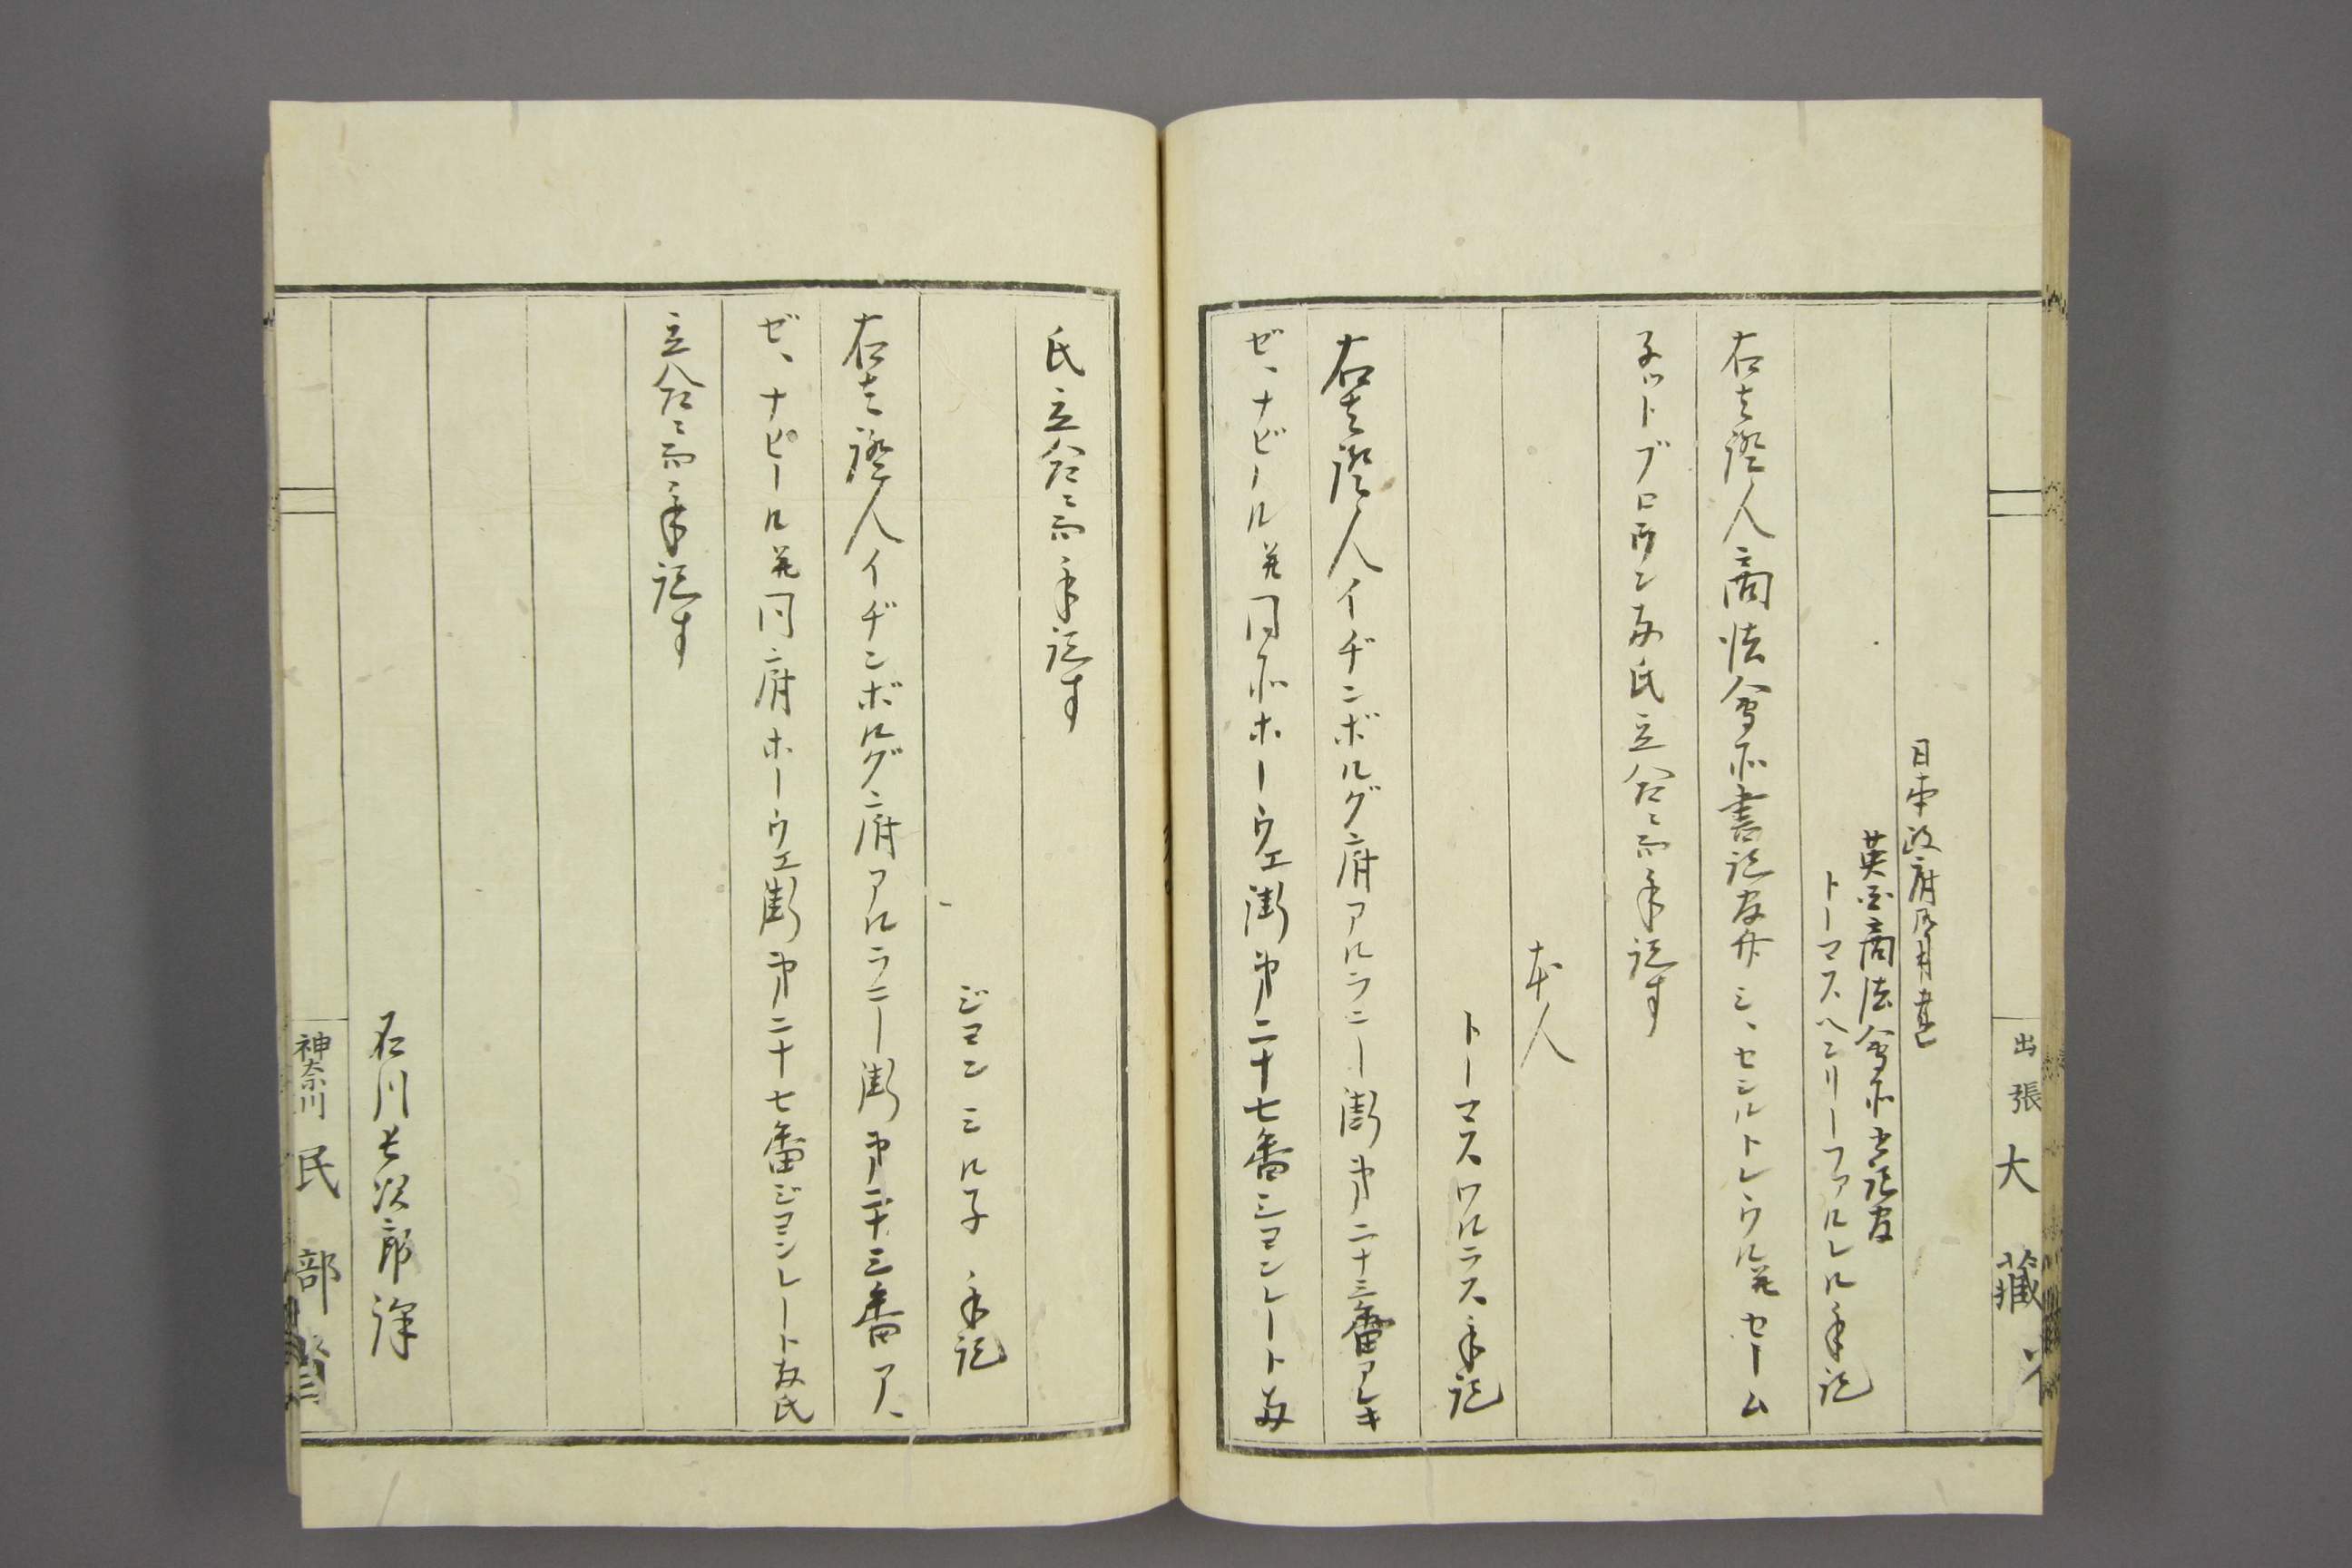 出張 大藏省
日本政府用書
英国商法會所書記官
トーマスヘンリーファルレル手記
右者證人商法會所書記官井シ、センルトレウル并セーム
子ットブロウン両氏立合ニ而手記す
本人
トーマスワルラス手記
右者證人イヂンボルグ府アルラニー街第二十三番アレキ
ゼ、ナビール并同所ホーウエ街第二十七番ジヨンレート両
氏立合ニ而手記す
ジヨンミル子 手記
右者證人イヂンボルグ府アルラニー街第二十三番ア、
ゼ、ナピール并同府ホーウエ街第二十七番ジヨンレート両氏
立合ニ而手記す
石川長次郎 譯
神奈川 民部省